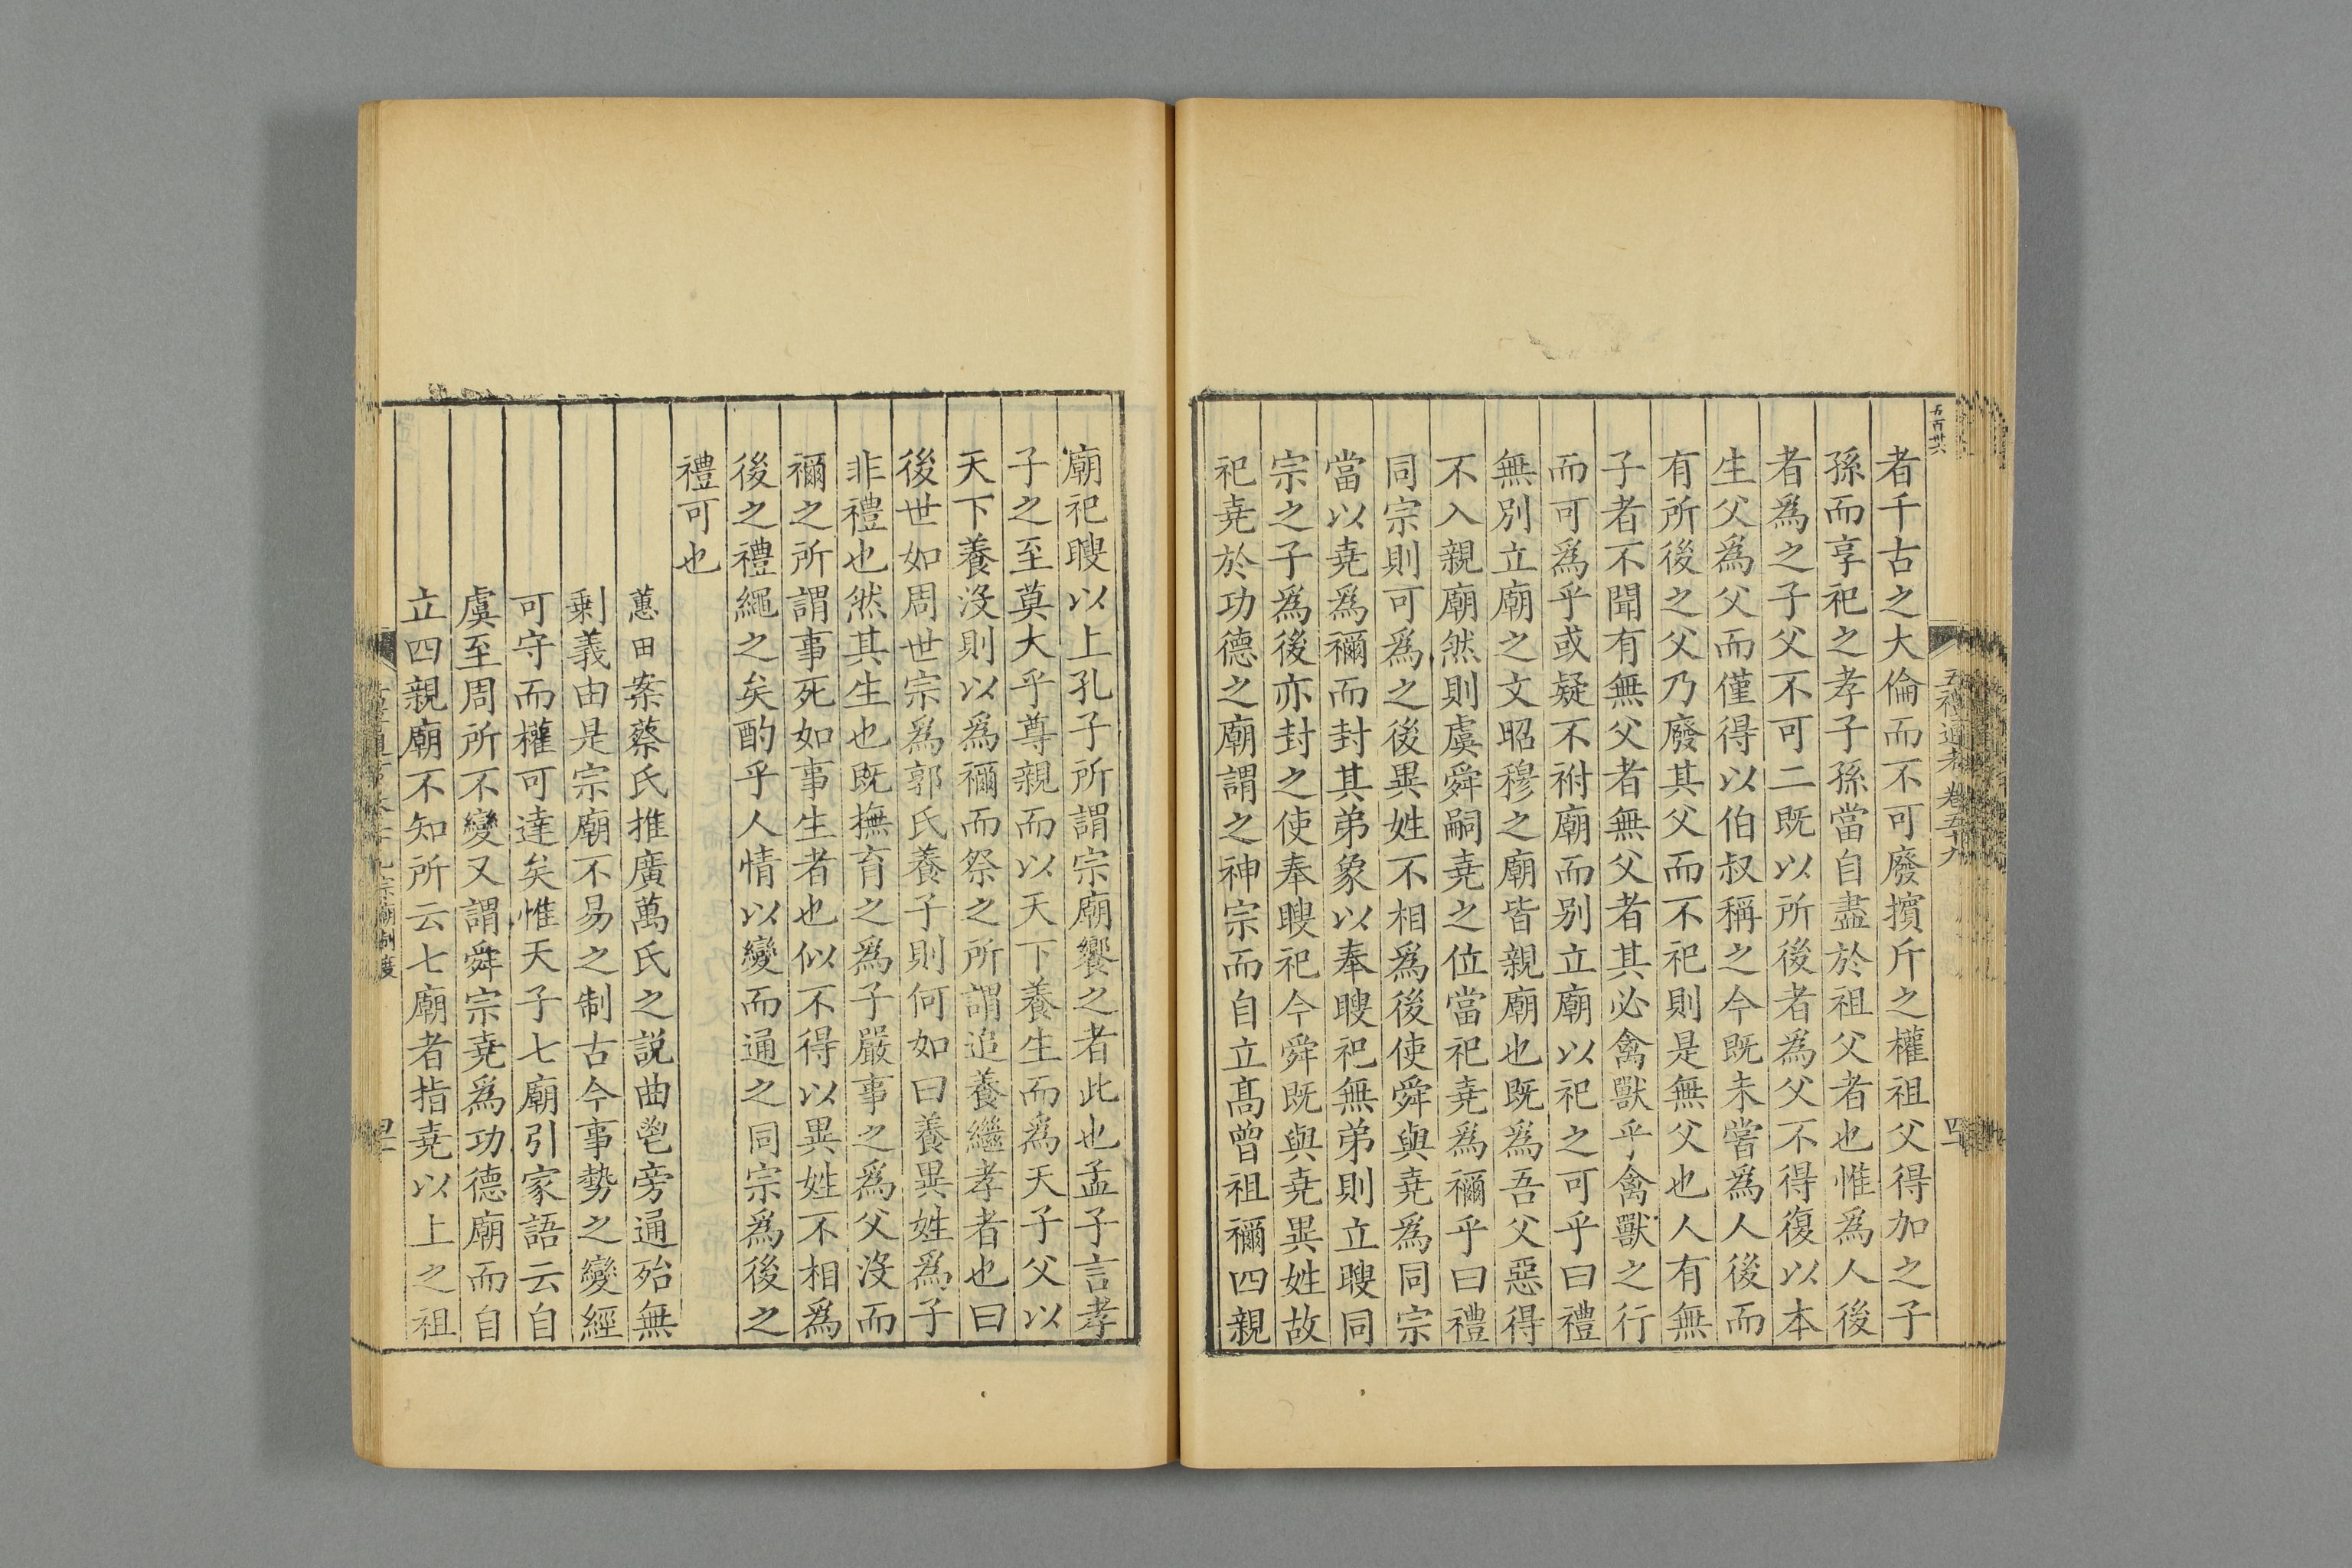 五百卅六
五禮通考 卷五十九
者千古之大倫而不可廢擯斥之權祖父得加之子
孫而享祀之孝子孫當自盡於祖父者也惟爲人後
者爲之子父不可二既以所後者為父不得復以本
生父爲父而僅得以伯叔稱之今既未嘗為人後而
有所後之父乃廢其父而不祀則是無父也人有無
子者不聞有無父者無父者其必禽獸乎禽獸之行
而可爲乎或疑不祔廟而别立廟以祀之可乎曰禮
無別立廟之文昭穆之廟皆親廟也既為吾父惡得
不入親廟然則虞舜嗣堯之位當祀堯為禰乎曰禮
同宗則可爲之後異姓不相爲後使舜與堯爲同宗
當以堯爲禰而封其弟象以奉瞍祀無弟則立瞍同
宗之子爲後亦封之使奉瞍祀今舜既與堯異姓故
祀堯於功德之廟謂之神宗而自立髙曾祖禰四親
廟祀瞍以上孔子所謂宗廟饗之者此也孟子言孝
子之至莫大乎尊親而以天下養生而爲天子父以
天下養沒則以爲禰而祭之所謂追養繼孝者也曰
後世如周世宗爲郭氏養子則何如曰養異姓爲子
非禮也然其生也既撫育之爲子嚴事之爲父沒而
禰之所謂事死如事生者也似不得以異姓不相爲
後之禮繩之矣酌乎人情以變而通之同宗爲後之
禮可也
蕙田案蔡氏推廣萬氏之説曲鬯旁通殆無
剰義由是宗廟不易之制古今事勢之變經
可守而權可達矣惟天子七廟引家語云自
虞至周所不變又謂舜宗堯爲功德廟而自
立四親廟不知所云七廟者指堯以上之祖
宗廟制度